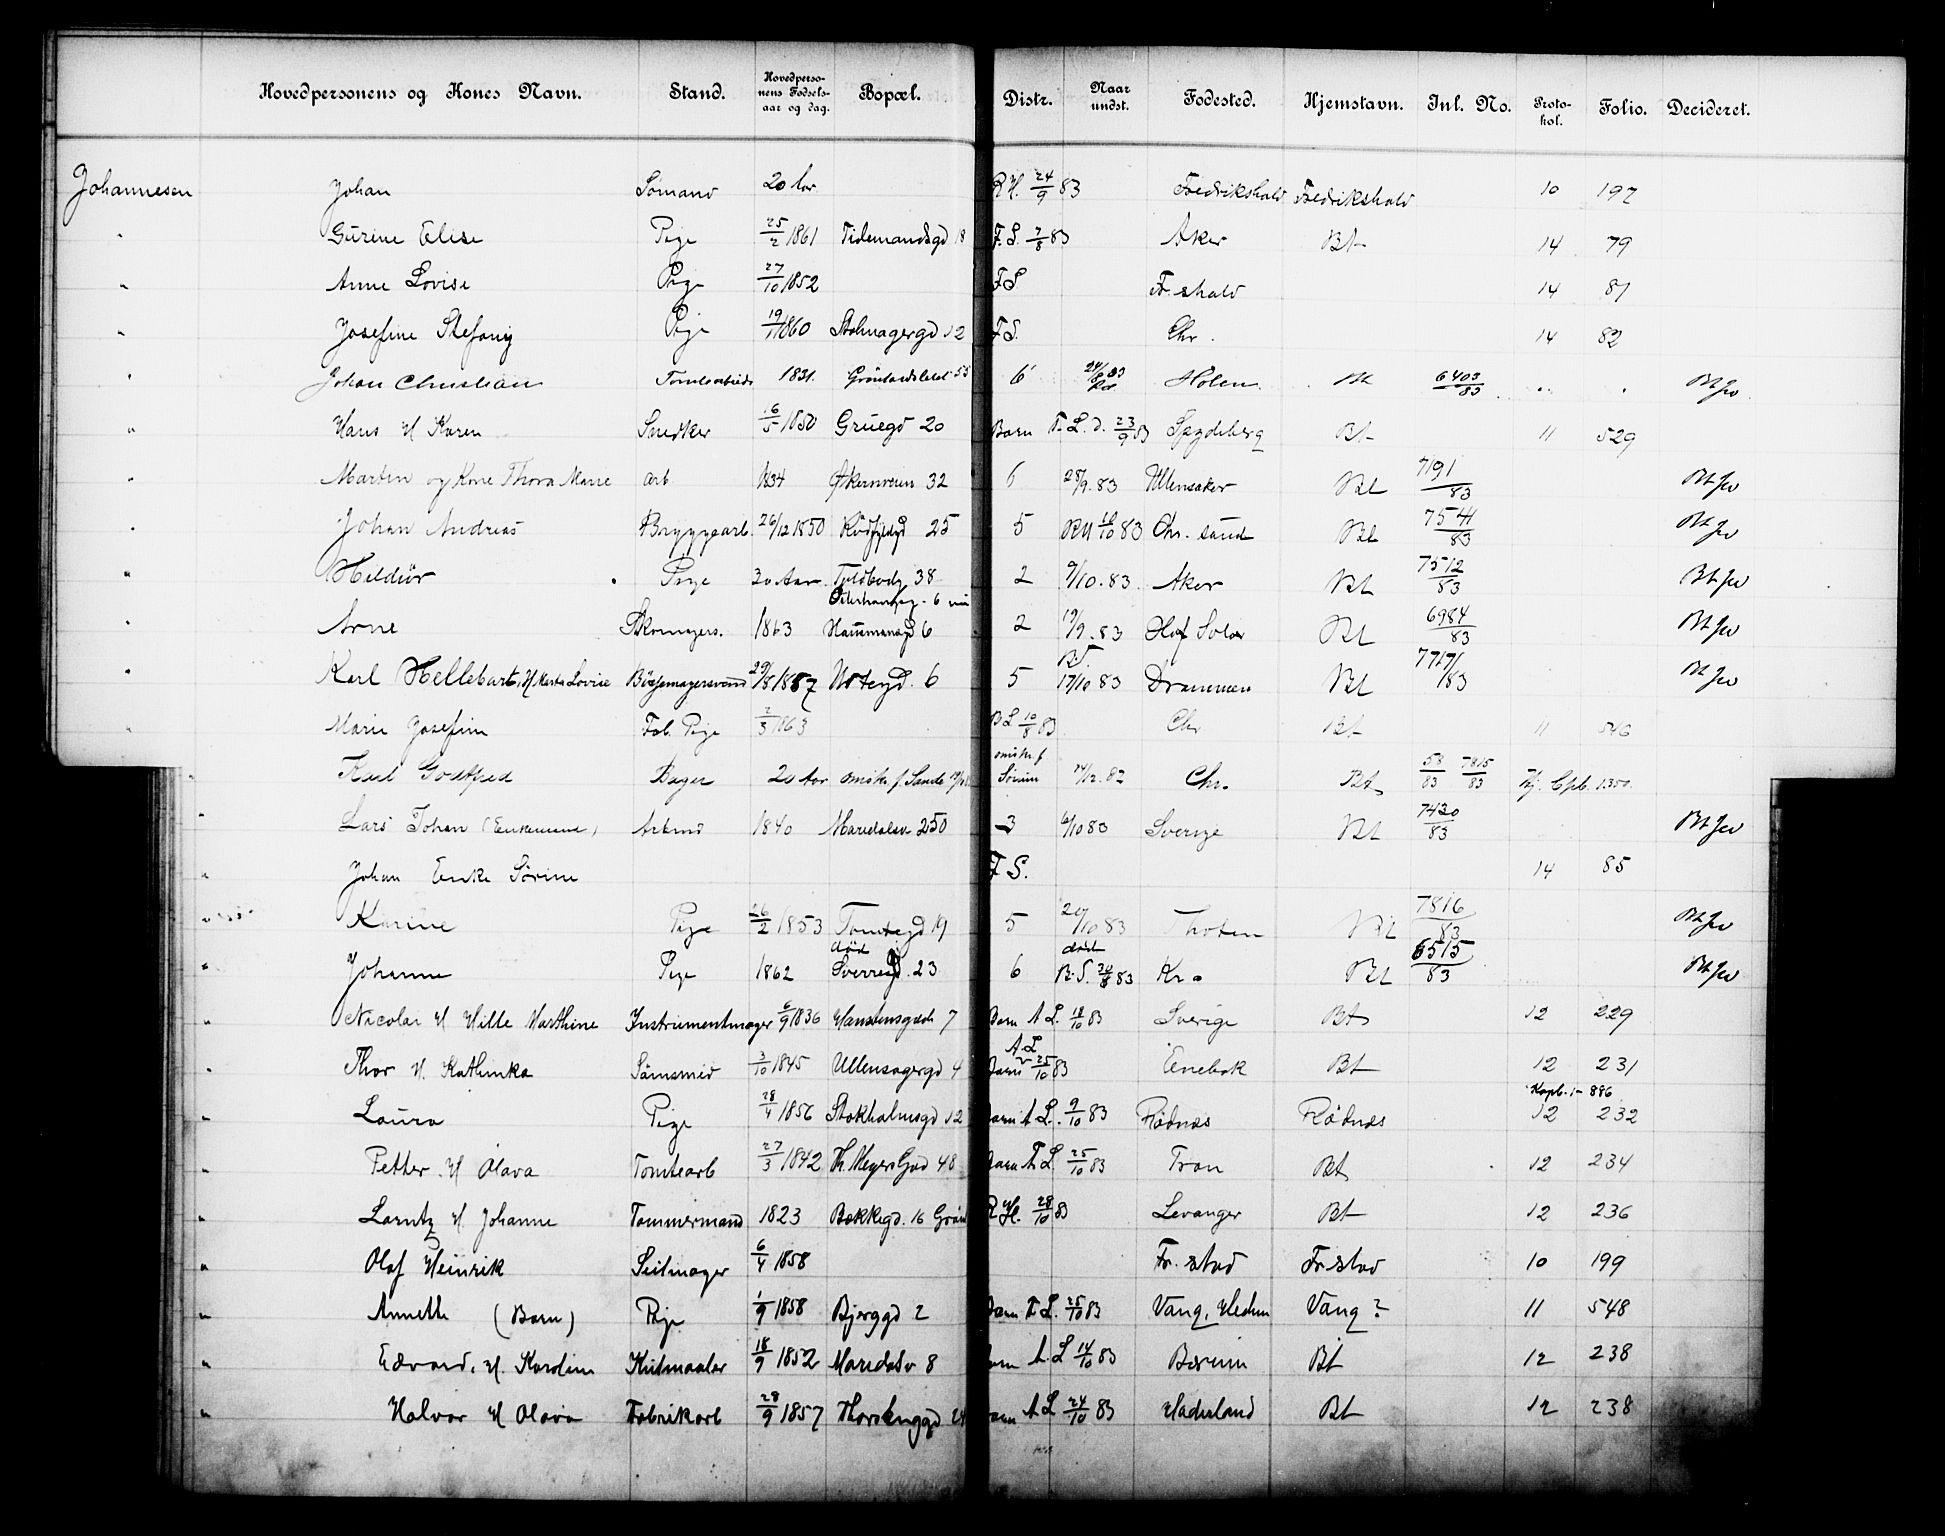 Hovedpersonens og Kones Navn. Stand. Hovedpersonens Fødselsaar og dag. Bopæl. Distr. Naar undst. Fødested. Hjemstavn. Inl. No. Protokol. Folio. Decideret.
Johannesen Johan Sømand 20 Aar R.H. 24/9 83 Fredrikshald Fredrikshald 10 197
" Gurine Elise Pige 25/2 1861 Tidemandsgd 18 F.S. 7/8 83 Aker Bt 14 79
" Anne Lovise Pige 27/10 1852 F.S Fr.shald 14 81
" Josefine Stefany Pige 19/11 1860 Stolmagergd 12 F.S. Chr. 14 82
" Johan Christian Tomtearbeids 1831. Grønlandsleret 55 6 83 Holen Bt 6403/83 " " Bt Jw
" Hans H Karen Snedker 16/5 1850 Gruegd 20 Barn F.L.d. 23/9 83 Spydeberg Bt 11 529
" Martin og Kone Thora Marie arb. 1834 Akersveien 32 6 28/9.83 Ullensaker Bt 7191/83 Bt Jw
" Johan Andreas Bryggearb. 26/12 1850 Rødfyldgd 25 5 RH 10/10 83 Chr. sand Bt 7541/83 Bt Jw
" Heldiør Pige 30 Aar Toldbodg 38 2 9/10.83. Aker Bt 7512/83 Bt Jw
" Arne Skomagers. 1863 Hausmansgd 6 2 19/9.83 Hof Solør Bt 6984/83 Bt Jw
" Karl Hellebart, H Marta Lovise Bøssemagersvend 29/8 1857 Østegd. 6 5 B.S. 17/10 83 Drammen Bt 7717/83 Bt Jw
" Marie Josefine Fab. Pige 2/3 1863 B L 10/8 83 Chr Bt 11 546
" Karl Godtfred Bager 20 Aar ønsk. f. Sande Chr. Bt 58/83 7815/83 Hj. Cpb. 1350.
" Lars Johan (Enkemand) Arbmd 1840 Maridalsv 250 3 6/10 83 Sverige Bt 7430/83 Bt Jw
" Johan Enke Sørine F S. 14 85
" Karine Pige 26/2 1853 Tomtegd 19 5 20/10 83 Thoten Bt 7816/83 Bt Jw
" Johanne Pige 1862 død Sverresgd. 23 6 død B.S. 83 Kr a Bt 6515/83 Bt Jw
" Nicolai H Hille Marthine Instrumentmager 6/9 1836 Hanstensgade 7 Barn A L. 18/10 83 Sverige Bt 12 229
" Thor H. Kathinka Sømsmed 3/10 1845 Ullensagergd 4 A L Barn 25/10 83 Enebak Bt 12 231
" Laura Pige 28/4 1856 Stokholmsgd 12 Barn A L. 9/10 83 Rødnæs Rødnæs Kopb. 1- 886 12 232
" Petter H Olava Tomtearb 27/3 1842 Th. Meyers Gad 48 Barn F L. 25/10 83 Tron Bt 12 234
" Larntz H. Johanne Tømmermand 1823 Bakkegd. 16 Grønl R H. 28/10 83 Levanger Bt 12 236
" Olaf Heinrik Seilmager 6/4 1858 Fr. stad Fr. stad 10 199
" Annette (Barn) Pige 1/9 1858 Bjerggd 2 Barn F. L. 25/10 83 Vang, Hedm Vang? 11 548
" Edvard, H. Karoline Hustmaaler 18/9 1852 Maridalsv 8 Barn A. L 14/10 83 Bærum Bt 12 238
" Halvor H Olava Fabrikarb 28/9 1857 Thorshauggd 24 Barn A L 24/10 83 Hadeland Bt 12 238